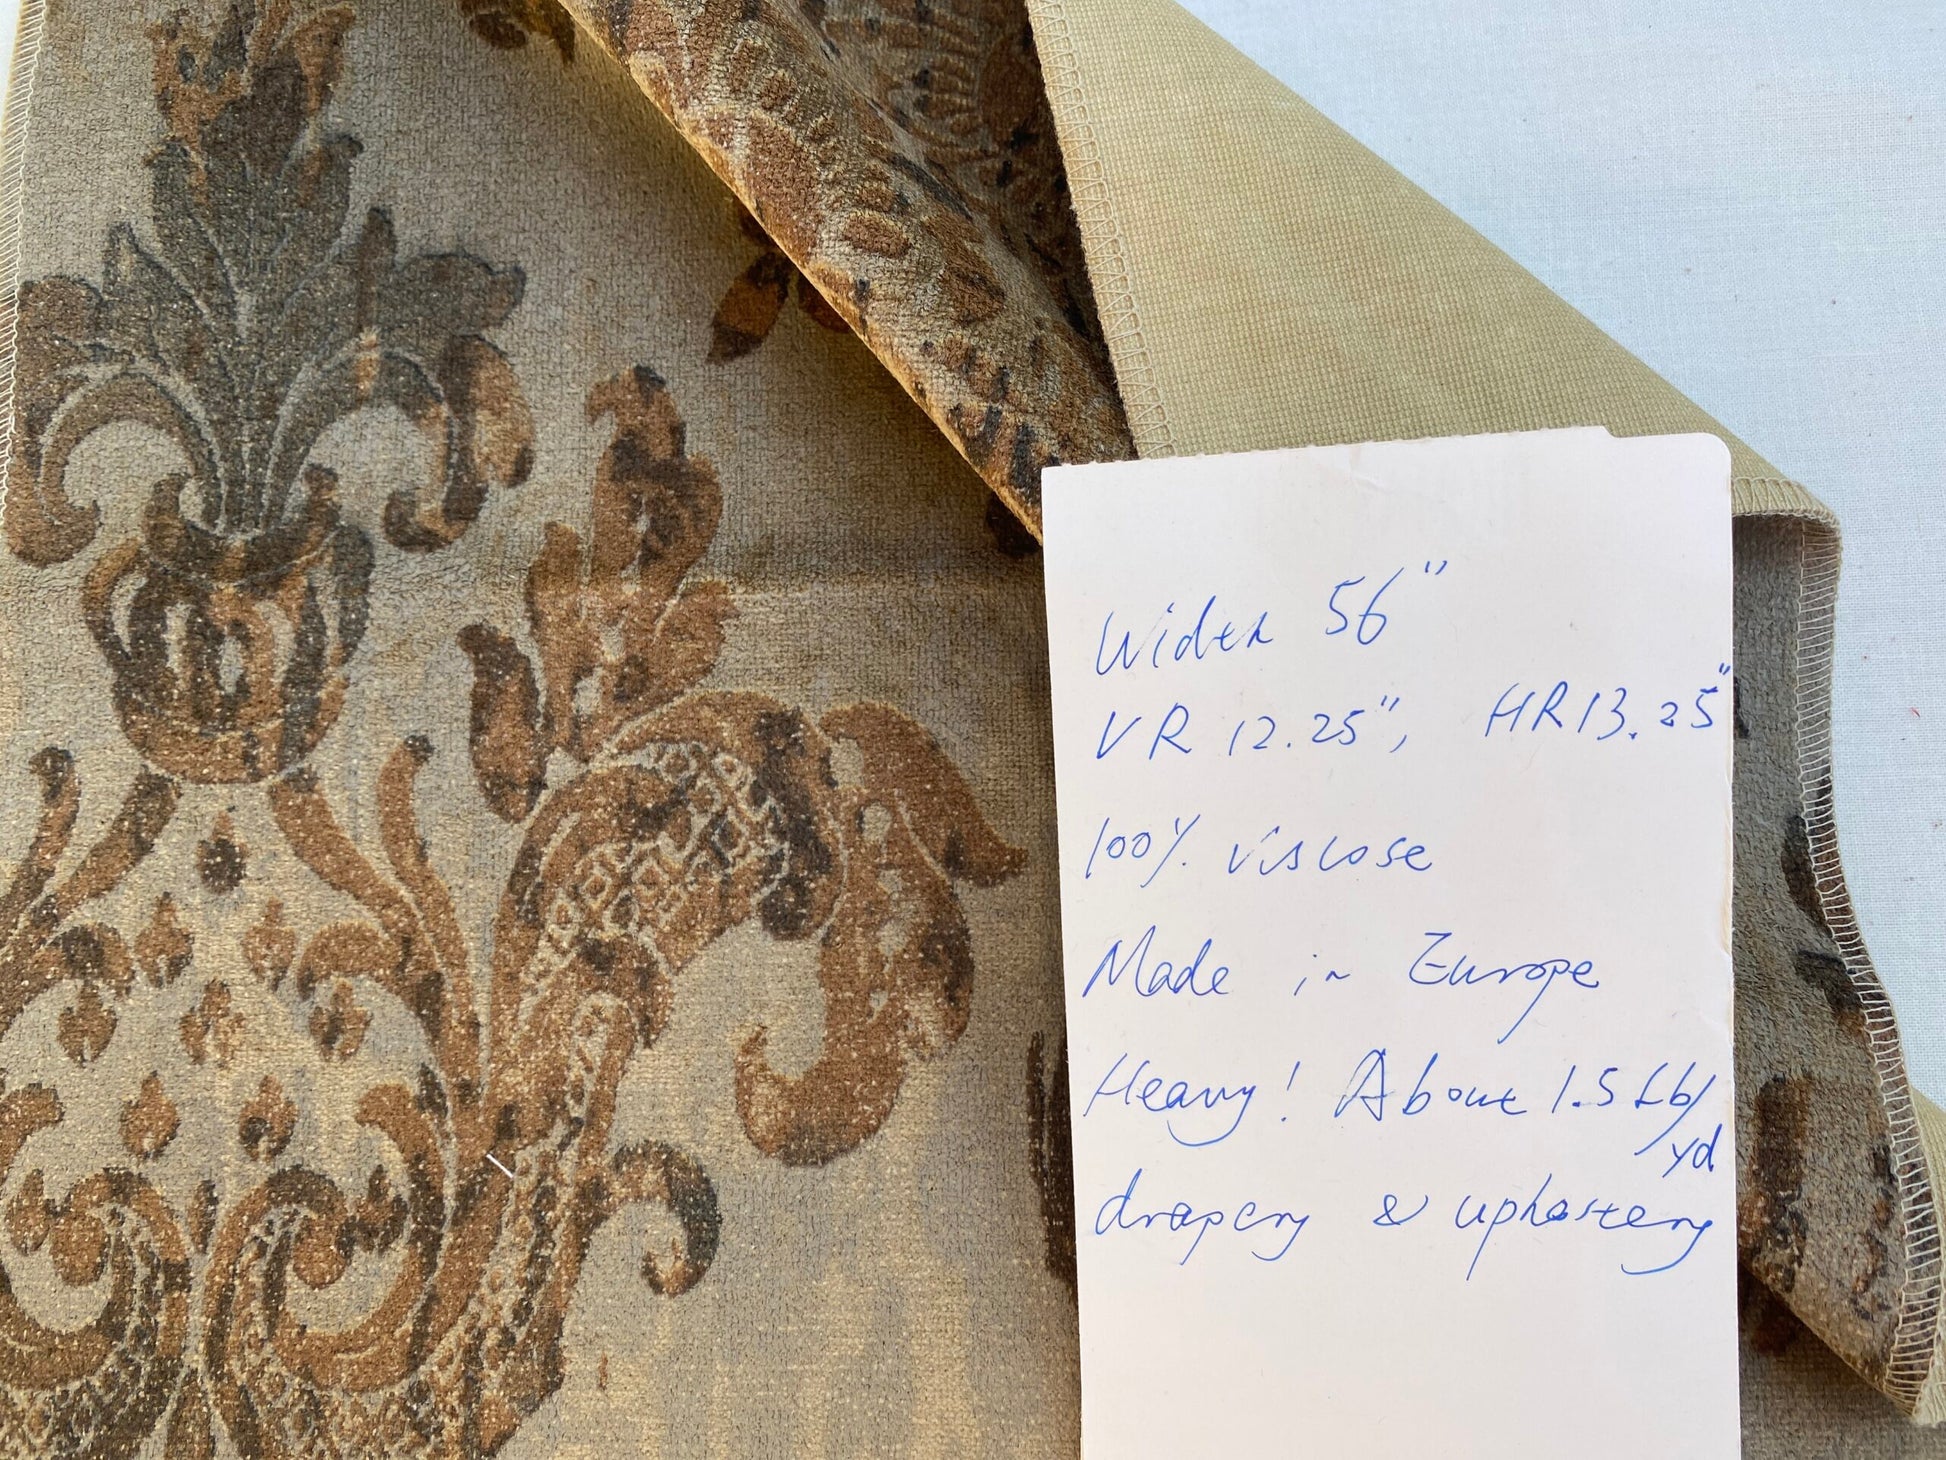 Width 56"
VR 12.25", HR 13.25"
100% viscose
Made in Europe
Heavy! About 1.5 Lb/
yd
drapery & upholstery